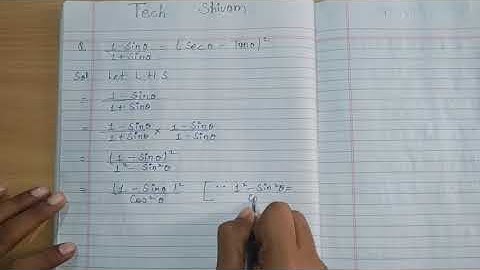 Tech Shivam
Q. (1-Sinθ)/(1+Sinθ) = (Secθ - Tanθ)²
Sol Let L.H.S
= (1-Sinθ)/(1+Sinθ)
= (1-Sinθ)/(1+Sinθ) × (1-Sinθ)/(1-Sinθ)
= (1-Sinθ)²/(1²-Sin²θ)
= (1-Sinθ)²/Cos²θ [∵ 1²-Sin²θ= Co